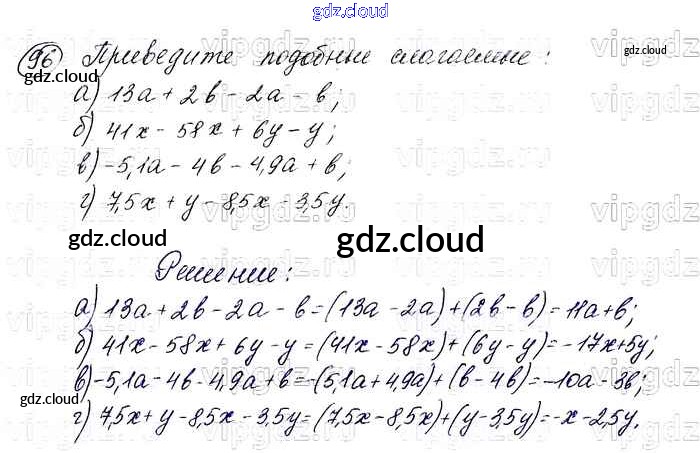 gdz.cloud
96 Приведите подобные слагаемые: gdz.cloud
gdz.cloud
а) 13a + 2b - 2a - b;
б) 41x - 58x + 6y - y;
в) -5,1a - 4b - 4,9a + b;
г) 7,5x + y - 8,5x - 3,5y.
gdz.cloud gdz.cloud gdz.cloud
Решение:
а) 13a + 2b - 2a - b = (13a - 2a) + (2b - b) = 11a + b;
б) 41x - 58x + 6y - y = (41x - 58x) + (6y - y) = -17x + 5y;
в) -5,1a - 4b - 4,9a + b = -(5,1a + 4,9a) + (b - 4b) = -10a - 3b;
gdz.cloud
г) 7,5x + y - 8,5x - 3,5y = (7,5x - 8,5x) + (y - 3,5y) = -x - 2,5y.
gdz.cloud